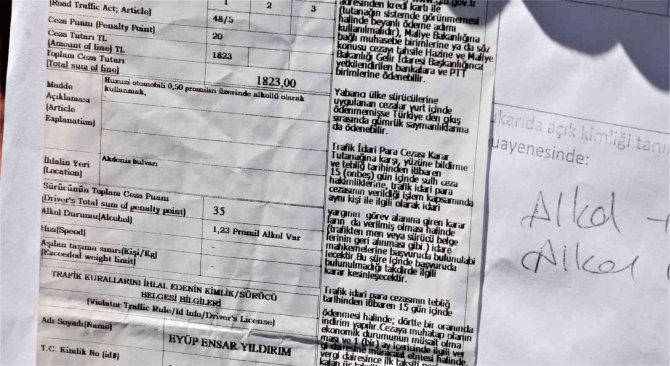 (Road Traffic Act; Article)
1 2 3
48/5
Ceza Puanı (Penalty Point)
20
Ceza Tutarı TL
(Amount of fine) TL
1823
Toplam Ceza Tutarı
(Total sum of fine)
1823,00
Madde
Açıklaması
(Article
Explanation)
Hususi otomobili 0,50 promilin üzerinde alkollü olarak
kullanmak,
İhlalin Yeri
(Location)
Akdeniz bulvarı
Sürücünün Toplam Ceza Puanı
(Driver's Total sum of penalty point)
35
Alkol Durumu(Alcohol)
1,23 Promil Alkol Var
Hız(Speed)
Aşılan taşıma sınırı(Kişi/Kg)
(Exceeded weight limit)
TRAFİK KURALLARINI İHLAL EDENİN KİMLİK/SÜRÜCÜ
BELGESİ BİLGİLERİ
(Violator Traffic Rule/Id Info/Driver's License)
Adı Soyadı(Name)
EYÜP ENSAR YILDIRIM
T.C. Kimlik No (id#)
adresinden kredi kartı ile
(tutanağın sistemde görünmemesi
halinde beyanlı ödeme adımı
kullanılmalı), Maliye Bakanlığına
bağlı muhasebe birimlerine ya da söz
konusu cezayı tahsile Hazine ve Maliye
Bakanlığı Gelir İdaresi Başkanlığınca
yetkilendirilen bankalara ve PTT
birimlerine ödenebilir.
Yabancı ülke sürücülerine
uygulanan cezalar yurt içinde
ödenmemişse Türkiye den çıkış
sırasında gümrük saymanlıklarına
da ödenebilir.
Trafik İdari Para Cezası Karar
Tutanağına karşı, yüzüne bildirme
ve tebliğ tarihinden itibaren
15 (onbeş) gün içinde sulh ceza
hakimliklerine, trafik idari para
cezasının verildiği işlem kapsamında
aynı kişi ile ilgili olarak idari
yargının görev alanına giren karar
ların da verilmiş olması halinde
(trafikten men veya sürücü belge
lerinin geri alınması gibi.) idare
mahkemelerine başvuruda bulunulabi
lecektir. Bu süre içinde başvuruda
bulunulmadığı takdirde ilgili
karar kesinleşecektir.
Trafik idari para cezasının tebliğ
tarihinden itibaren 15 gün içinde
ödenmesi halinde; dörtte bir oranında
indirim yapılır. Cezaya muhatap olanın
ekonomik durumunun müsait olma
ması ve 1 (bir) ay içerisinde ilgili ver
gi dairesine müracaat etmesi halinde,
vergi dairesince ilk taksiti
ukarıda açık kimliği tanı
uayenesinde:
Alkol
Alkol